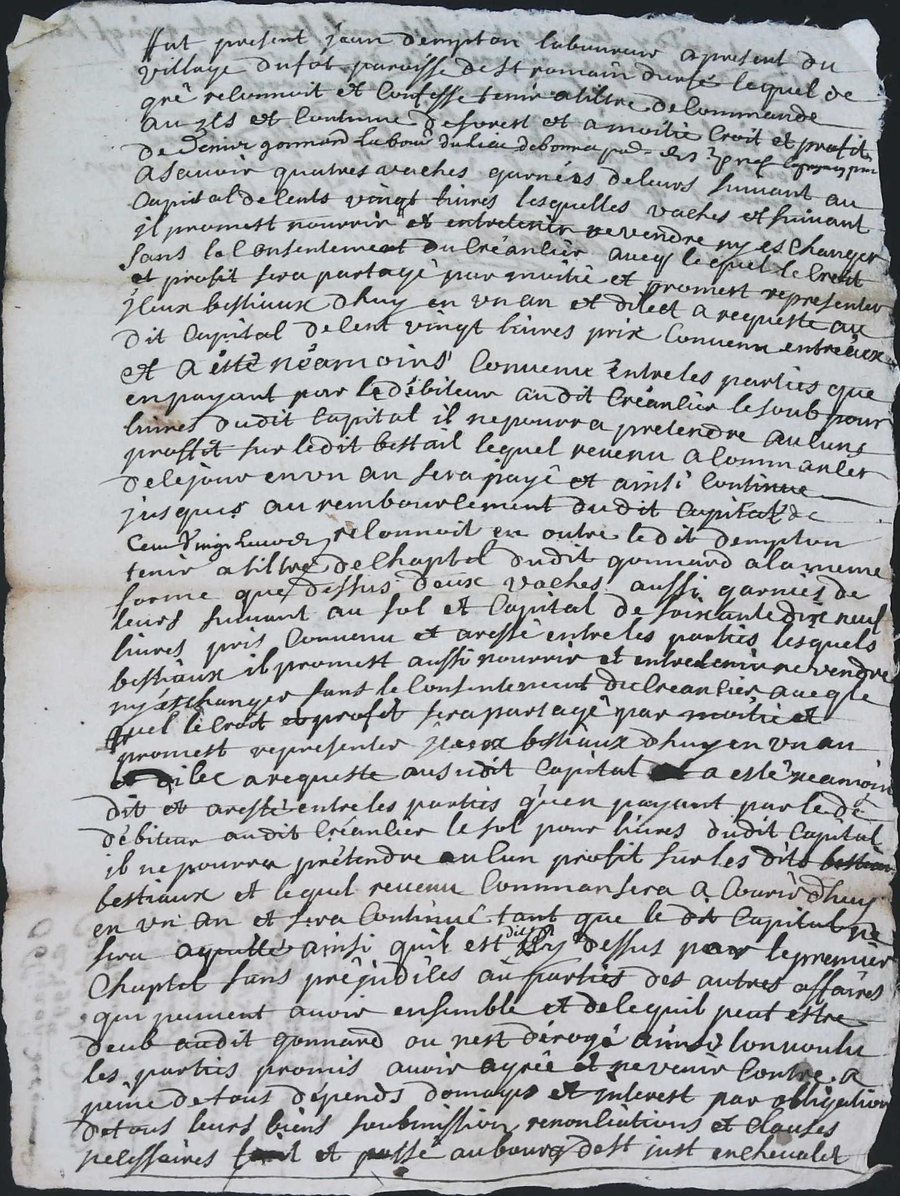 fut present jean dempton laboureur apresent du
village dufot paroisse de st romain durfé lequel de
gré reconnoit et confesse tenir a tiltre de commande
au us et coutume deforest et a moitié croit et profit
de Denis gonnard labour du lieu debonna
a scavoir quatres vaches garnies deleurs suivant au
capital decents vingt livres lesquelles vaches et suivant
il promest nourrir et entretenir ne vendre ny eschanger
sans le consentement du créancier avecq lequel le croit
et profit sera partagé par moitié et promest representer
iceux bestiaux dhuy en un an et dilect a requeste au
dit capital decent vingt livres prix convenu entre eux
et a étté néamoins convenu entre les parties que
en payant par le débiteur audit créancier le soub pour
livres dudit capital il nepourra pretendre aucuns
proffit sur ledit bestail lequel revenu a commancer
dece jour en un an sera payé et ainsi continue
jusques au remboursement dudit capital de
Cent Vingt livres reconnoit en outre ledit dempton
tenir a tiltre de chaptel dudit gonnard a la meme
forme que dessus deux vaches aussi garnies de
leurs suivant au sol et capital de soixante dix neuf
livres pris convenu et aresté entre les parties lesquels
bestiaux il promest aussi nourrir et entretenir ne vendre
ny eschanger sans le consentement du creancier avecq le
quel le croit et profit sera partagé par moitié et
promest representer iceux bestiaux dhuy en un an
et dilec a requeste ausudit capital a esté neamoin
dit et aresté entre les parties qu'en payant par le dé
débiteur audit créancier le sol pour livres dudit capital
il ne pourra prétendre aucun profit sur les dits
bestiaux et lequel revenu commansera a courir dhuy
en un an et sera continué tant que le dt capital ne
sera aquitté ainsi quil est dit cy dessus par le premier
chaptel sans préjudices au parties des autres affaires
qui peuvent avoir ensemble et de ce quil peut estre
deub audit gonnard ou nest dérogé ainsi lon voulu
les parties promis avoir agrée et ne venir contre a
peine de tous dépends domages et interest par obligation
de tous leurs biens soubmission renonciations et clauses
necessaires fait et passé au bourg de st just en chevalet